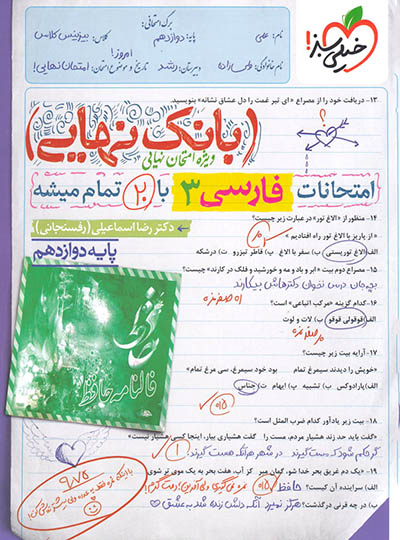 برگ امتحانی:
نام: علمی
پایه: دوازدهم
کلاس: بیزینس کلاس
امروز!
نام خانوادگی:
دبیرستان: رشد
تاریخ و موضوع امتحان: امتحان نهایی!
خیلی سبز!
۱۳- دریافت خود را از مصراع «ای تیر غمت را دل عشاق نشانه» بنویسید.
(بانک نهایی)
ویژه امتحان نهایی
امتحانات فارسی ۳ با ۲۰ تمام میشه
۱۴- منظور از «الاغ تور» در عبارت زیر چیست؟
« از پاریز با الاغ تور راه افتادیم »
الف) الاغ توریستی ب) سفر با الاغ پ) قاطر تیزرو ت) درشکه
دکتر رضا اسماعیلی (رفسنجانی)
پایه دوازدهم
۱۵- مصراع دوم بیت « ابر و باد و مه و خورشید و فلک در کارند» چیست؟
بچه‌مان درس نخوان دکترهاش بیکارند
۱۶- کدام گزینه «مرکب اتباعی» است؟
الف) قوقولی قوقو ب) لات و لوت
۱۷- آرایه بیت زیر چیست؟
«خویش را دیدند سیمرغ تمام بود خود سیمرغ، سی مرغ تمام»
الف) پارادوکس ب) تشبیه پ) ایهام ت) جناس
فالنامه حافظ
۱۸- بیت زیر یادآور کدام ضرب المثل است؟
«گفت باید حد زند هشیار مردم، مست را گفت هشیاری بیار، اینجا کسی هشیار نیست»
گر حکم شود که مست گیرند در شهر هر آنکه هست گیرند!
۱۹- «یک دم غریق بحر خدا شو، گمان مبر کز آب، هفت بحر به یک موی تر شوی
الف) سراینده آن کیست؟ حافظ
ب) در چه قرنی درگذشت؟ هرگز نمیرد آنکه دلش زنده شد به عشق